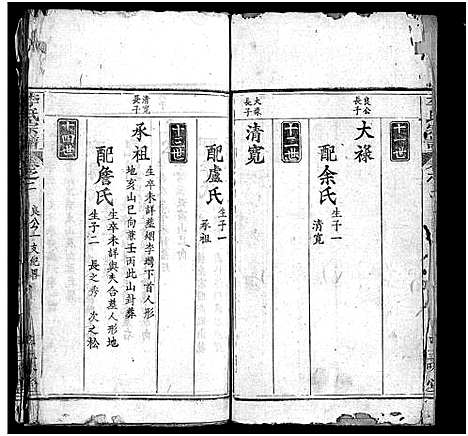 良公長子
大祿
配余氏
生子一
清寛
十三世
大祿長子
清寛
配盧氏
生子一
承祖
十三世
清寛長子
承祖
生卒未詳葬烟李塆下首人形
地亥山巳向兼壬丙此山封葬
配詹氏
生卒未詳與夫合葬人形地
生子二
長之秀
次之松
十四世
李氏宗譜
卷之二
良公一支紀畧